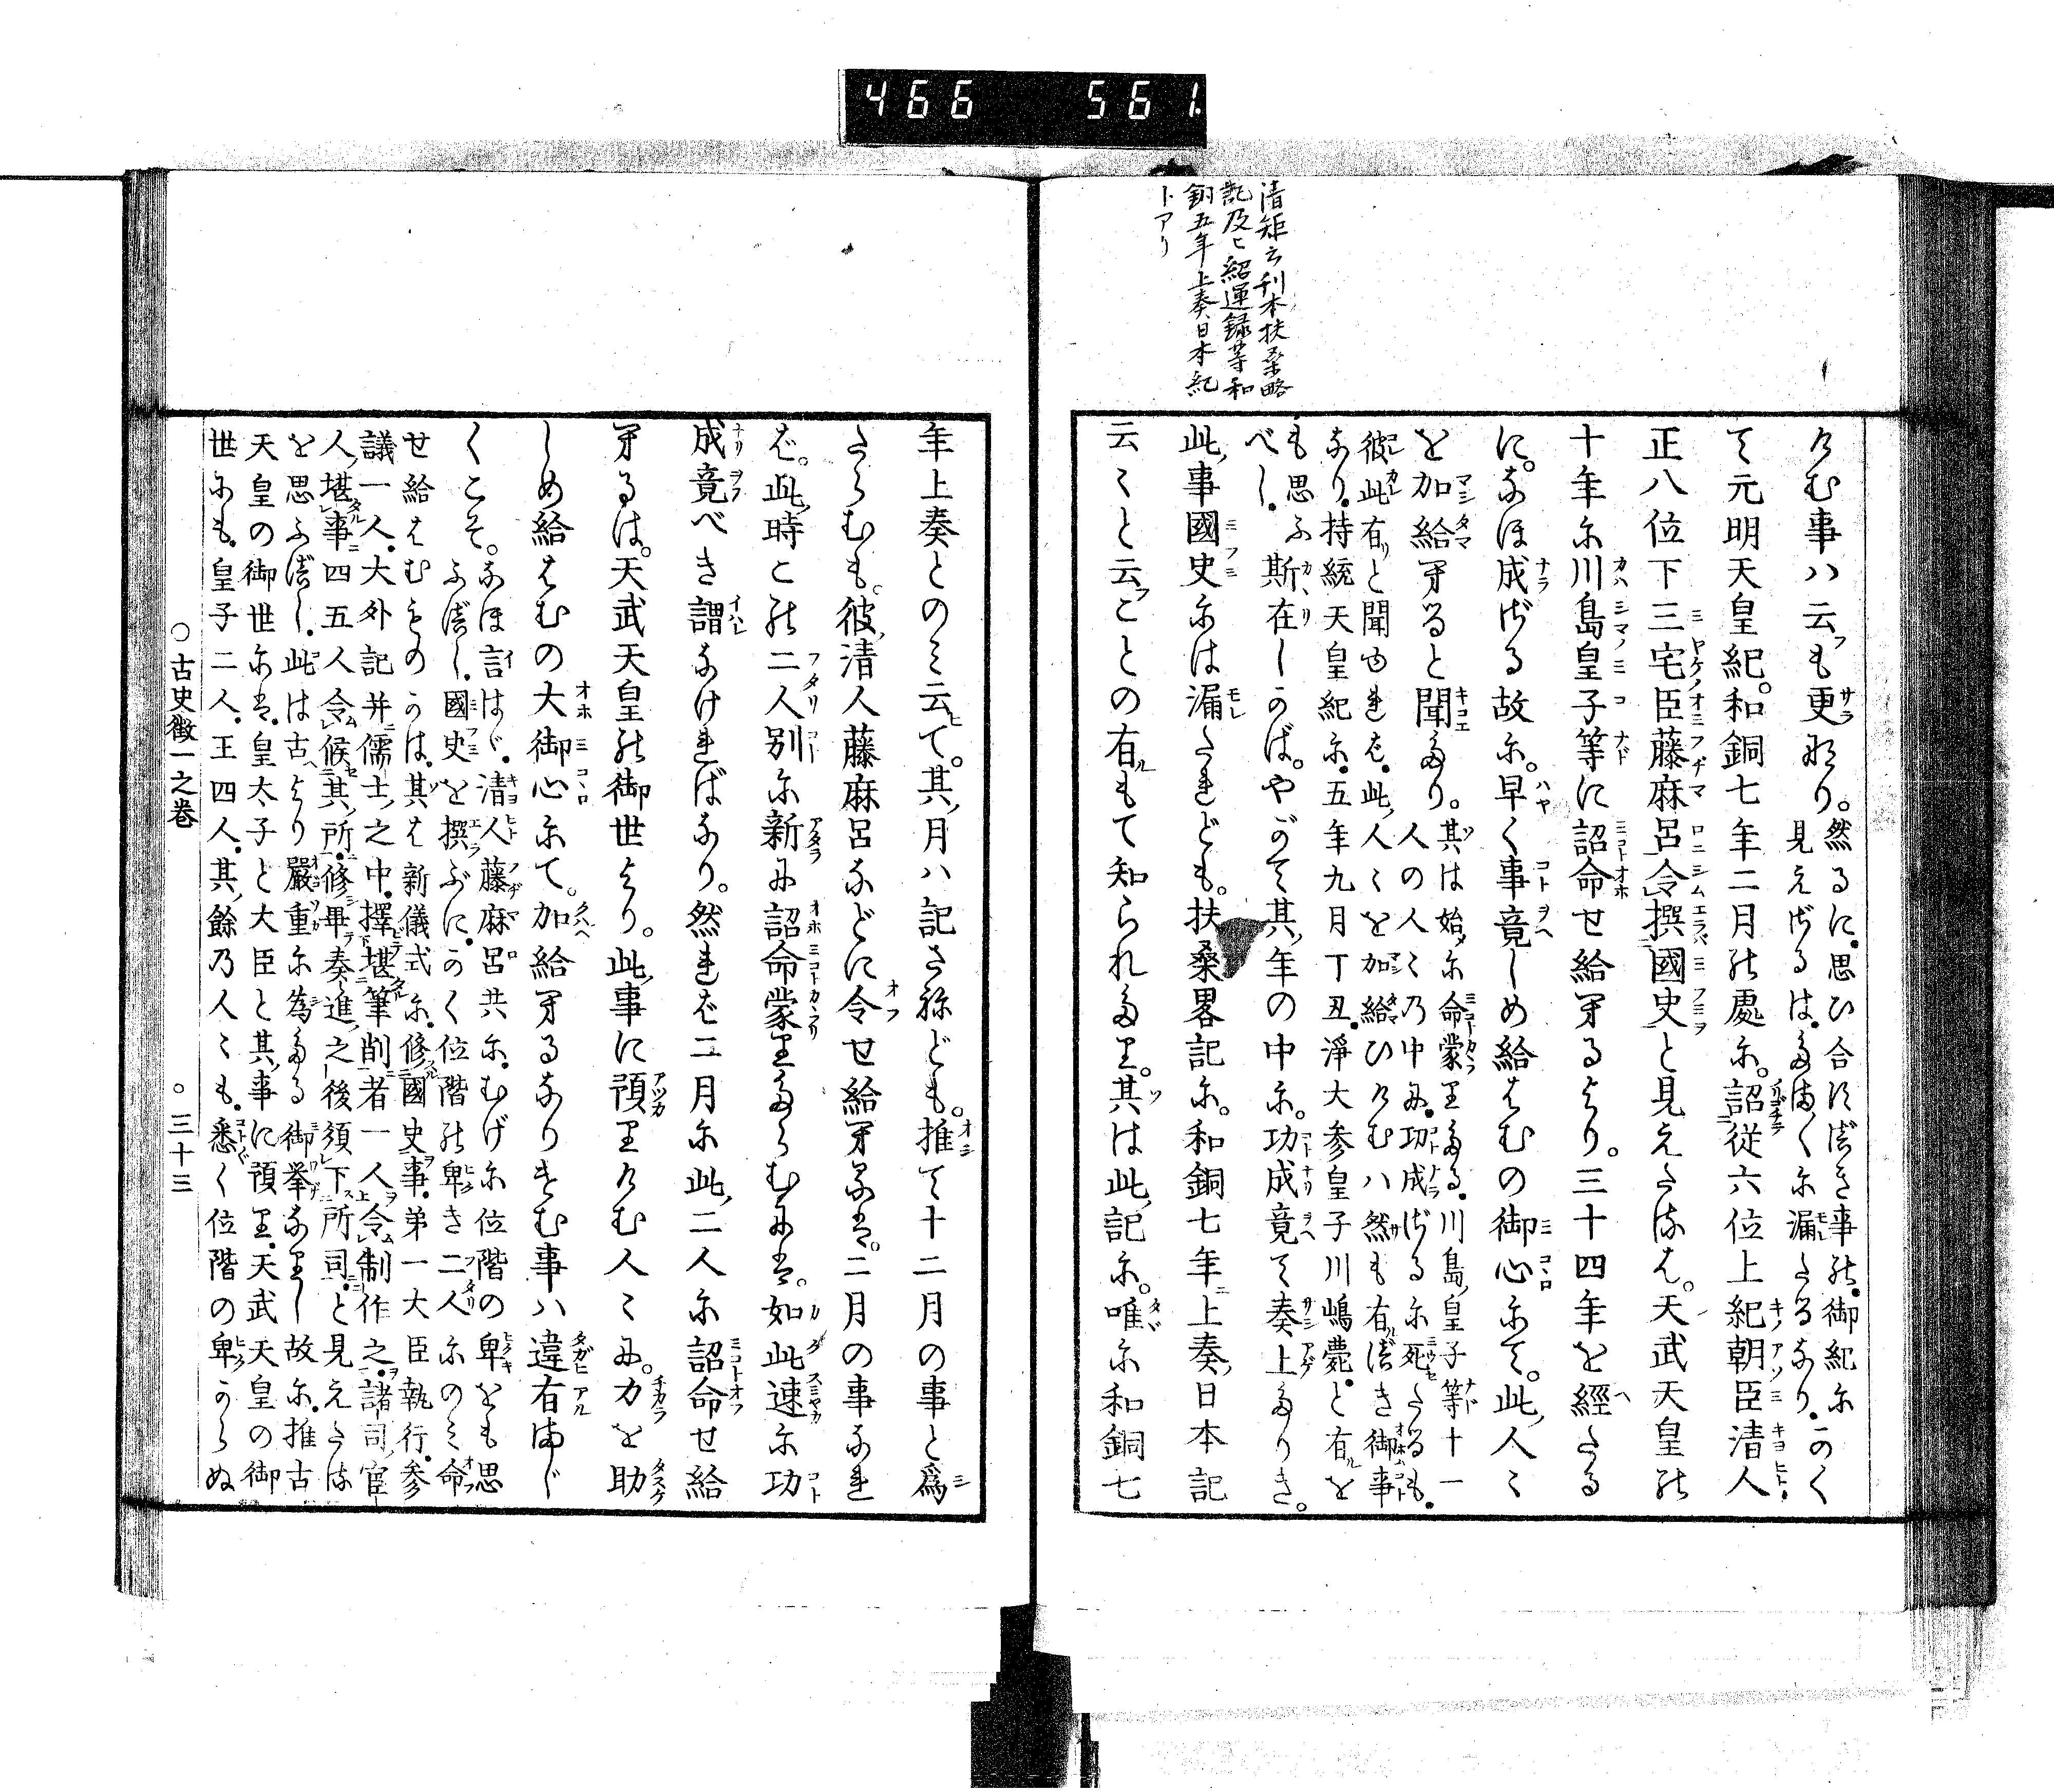 466 561
清矩云刊本扶桑略
記及ヒ紹運録等和
銅五年上奏日本紀
トアリ
けむ事ハ云も更なり。然るに思ひ合すべき事の、御紀に
見えざるは、多く漏たるなり。かく
て元明天皇紀。和銅七年二月の處に。詔從六位上紀朝臣清人
正八位下三宅臣藤麻呂令撰國史と見えたるは。天武天皇の
十年に川島皇子等に詔命せ給へるより。三十四年を經たる
に。なほ成ざる故に。早く事竟しめ給はむの御心にて。此人〻
を加給へると聞たり。其は始に命蒙りたる、川島皇子等十一
人の人〻の中に、功成ざるに死たるも、
彼此有と聞ゆれば、此人〻を加給ひけむハ然も有べき御事
なり。持統天皇紀に、五年九月丁丑、淨大参皇子川嶋薨と有を
も思ふ
べし。斯在しかば。やがて其年の中に。功成竟て奏上たりき。
此事國史には漏たれども。扶桑畧記に。和銅七年上奏日本記
云〻と云ことの有もて知られたり。其は此記に。唯に和銅七
年上奏とのみ云て。其月ハ記さねども。推て十二月の事と爲
たらむも。彼清人藤麻呂などに令せ給へるは。二月の事なれ
ば。此時この二人別に新に詔命蒙りたらむには。如此速に功
成竟べき謂なければなり。然れば二月に此二人に詔命せ給
へるは。天武天皇の御世より。此事に預りけむ人〻に。力を助
しめ給はむの大御心にて。加給へるなりけむ事ハ違有まじ
くこそ。なほ言はゞ、清人藤麻呂共に、むげに位階の卑をも思
ふべし。國史を撰ぶに、かく位階の卑き二人にのみ命
せ給はむものかは。其は新儀式に、修國史事、弟一大臣執行、参
議一人、大外記并儒士之中、擇堪筆削者一人令制作之、諸司官
人堪事四五人令候其所、修畢奏進之後須下所司、と見えたる
を思ふべし。此は古より嚴重に為たる御挙なりし故に、推古
天皇の御世には、皇太子と大臣と其事に預り、天武天皇の御
世にも、皇子二人、王四人、其餘乃人〻も、悉く位階の卑からぬ
○古史徴一之巻 ○三十三